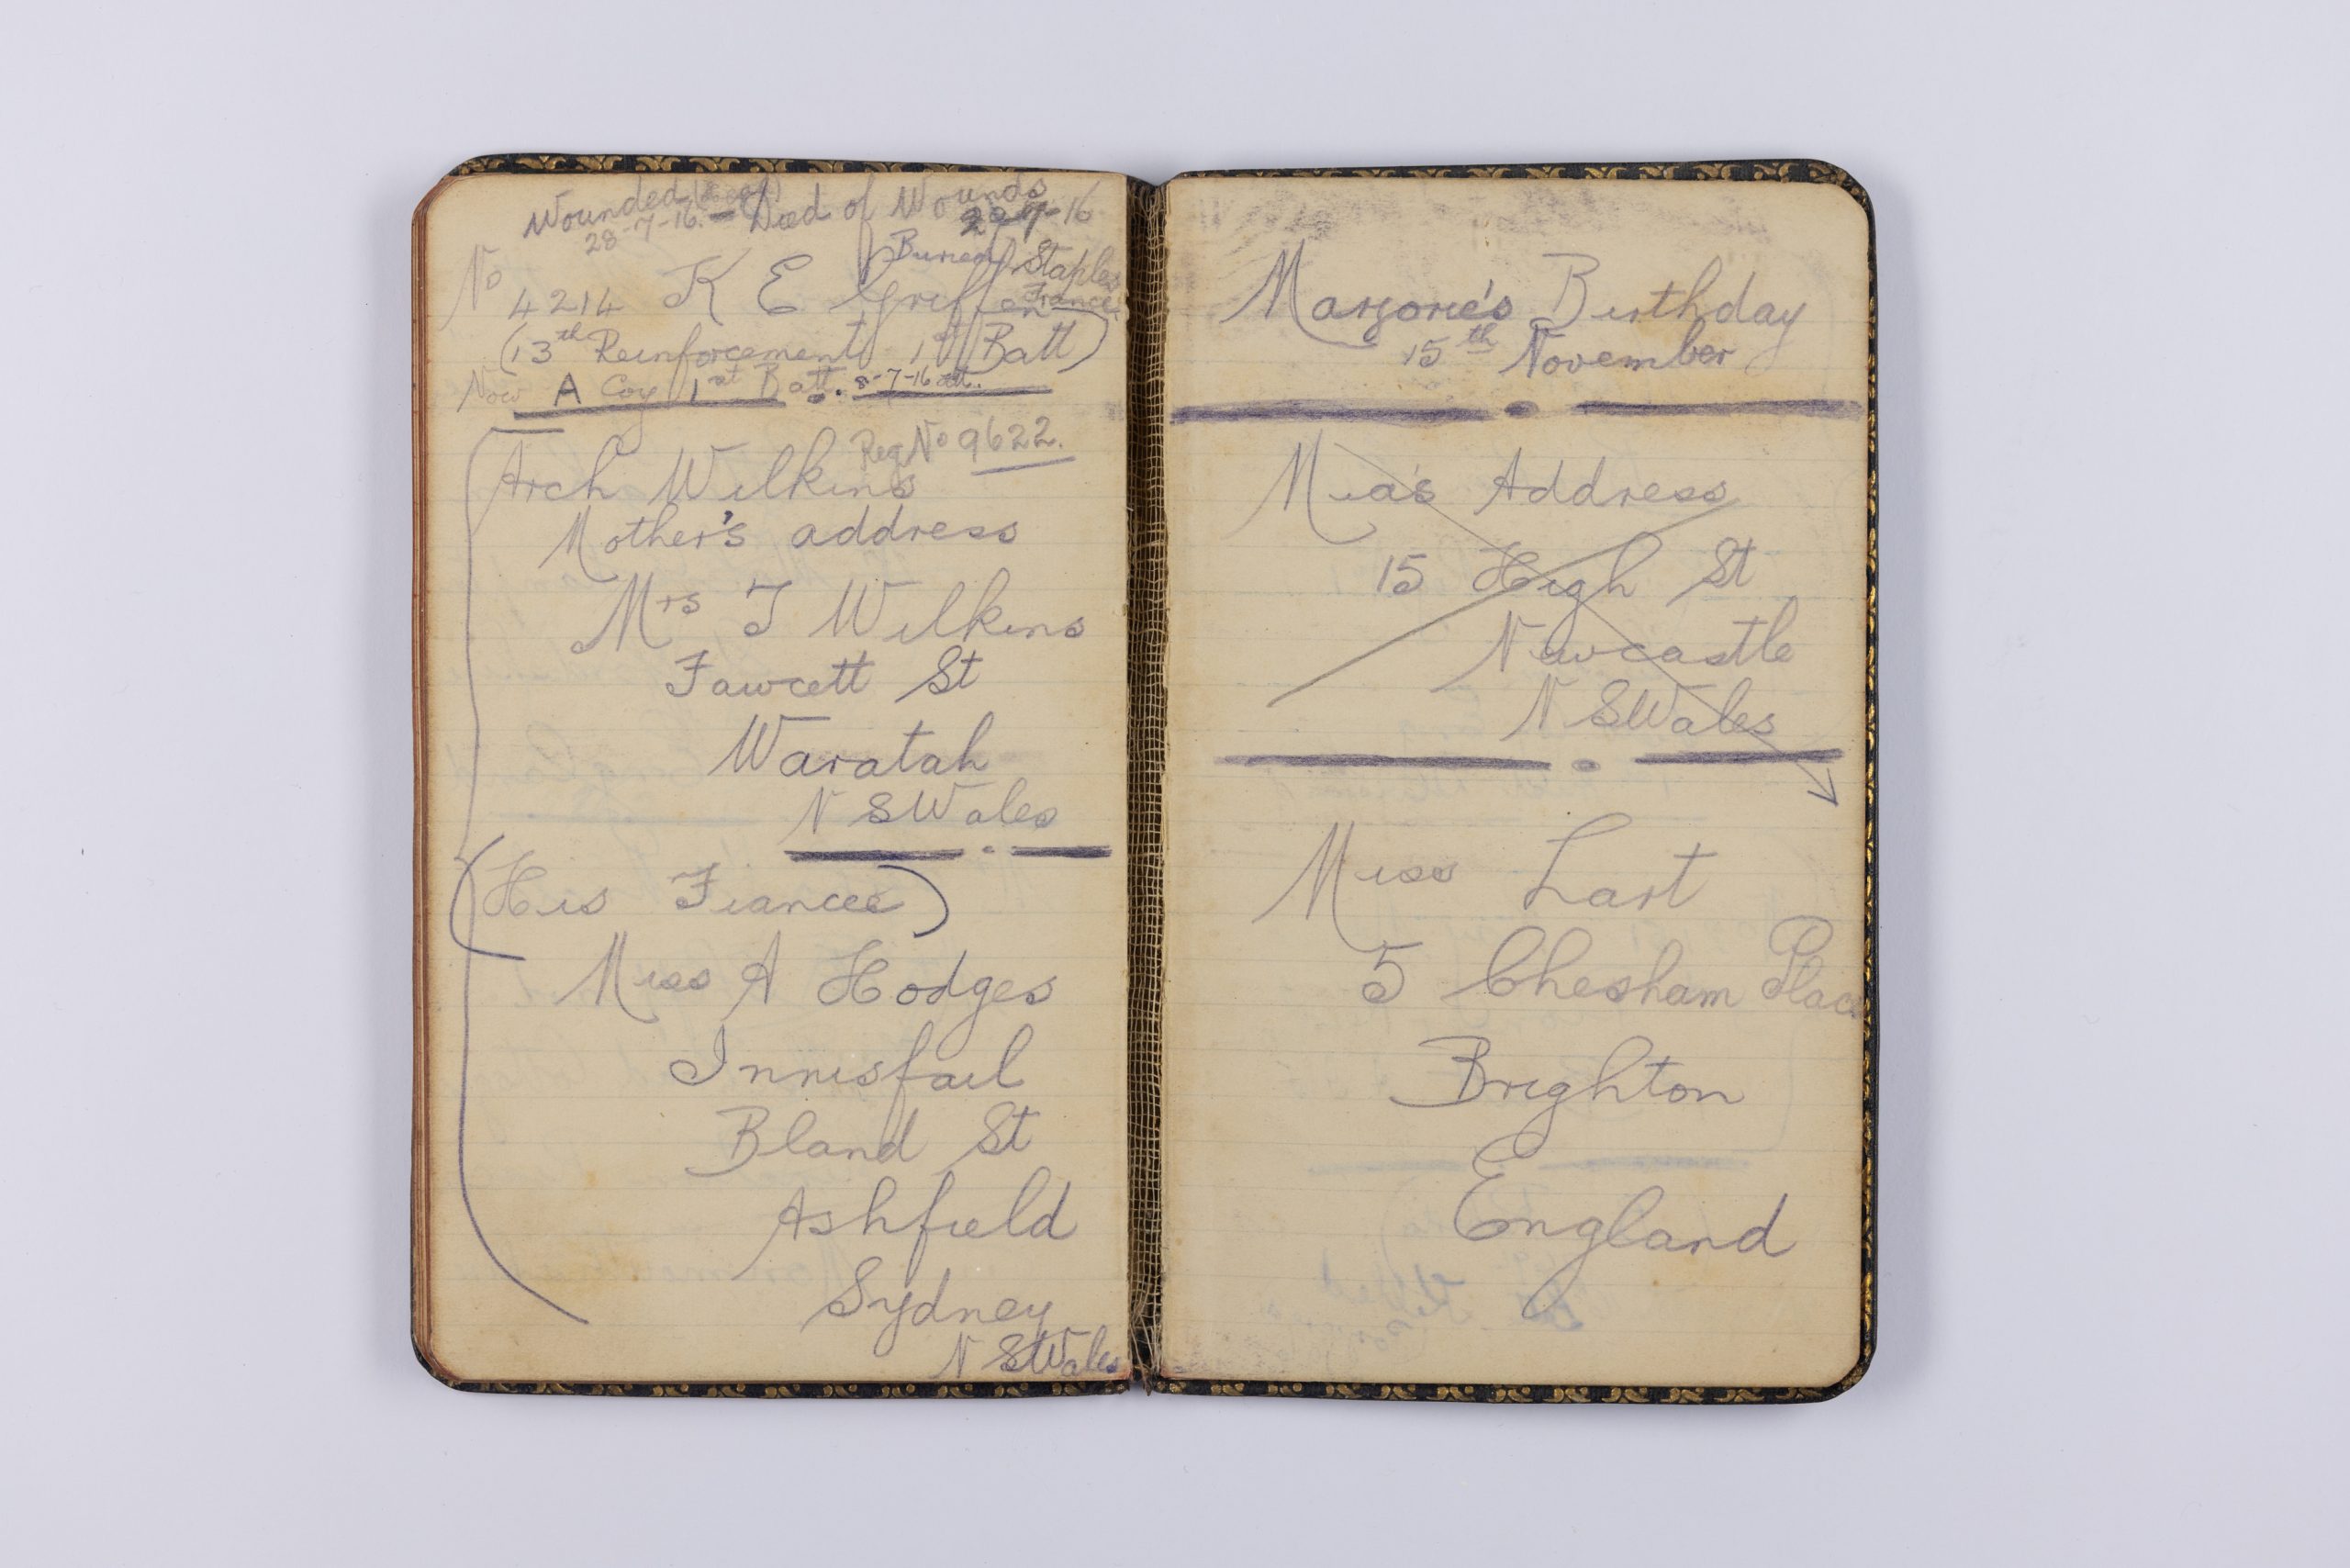 Wounded
28-7-16. - Died of Wounds
29-7-16
Buried Etaples
France
No
4214 K E Griffen
(13th Reinforcement 1st Batt)
Now A Coy 1st Batt. 8-7-16
Reg No 9622.
Arch Wilkins
Mother's address
Mrs T Wilkins
Fawcett St
Waratah
N S Wales
(His Fiancee)
Miss A Hodges
Innisfail
Bland St
Ashfield
Sydney
N S Wales
Marjorie's Birthday
15th November
Mia's Address
15 High St
Newcastle
N S Wales
Miss Lart
5 Chesham Place
Brighton
England